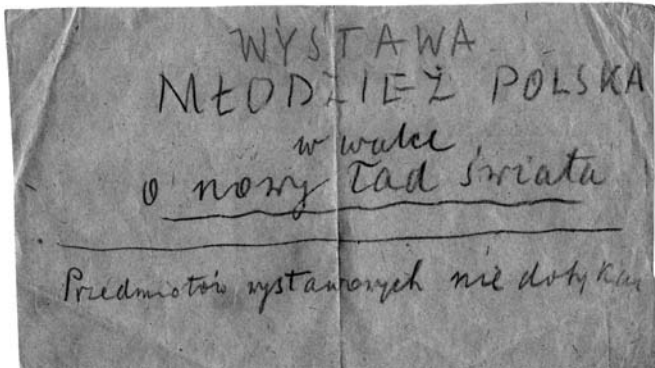 WYSTAWA
MŁODZIEŻ POLSKA
w walce
o nowy ład świata
Przedmiotów wystawowych nie dotykać